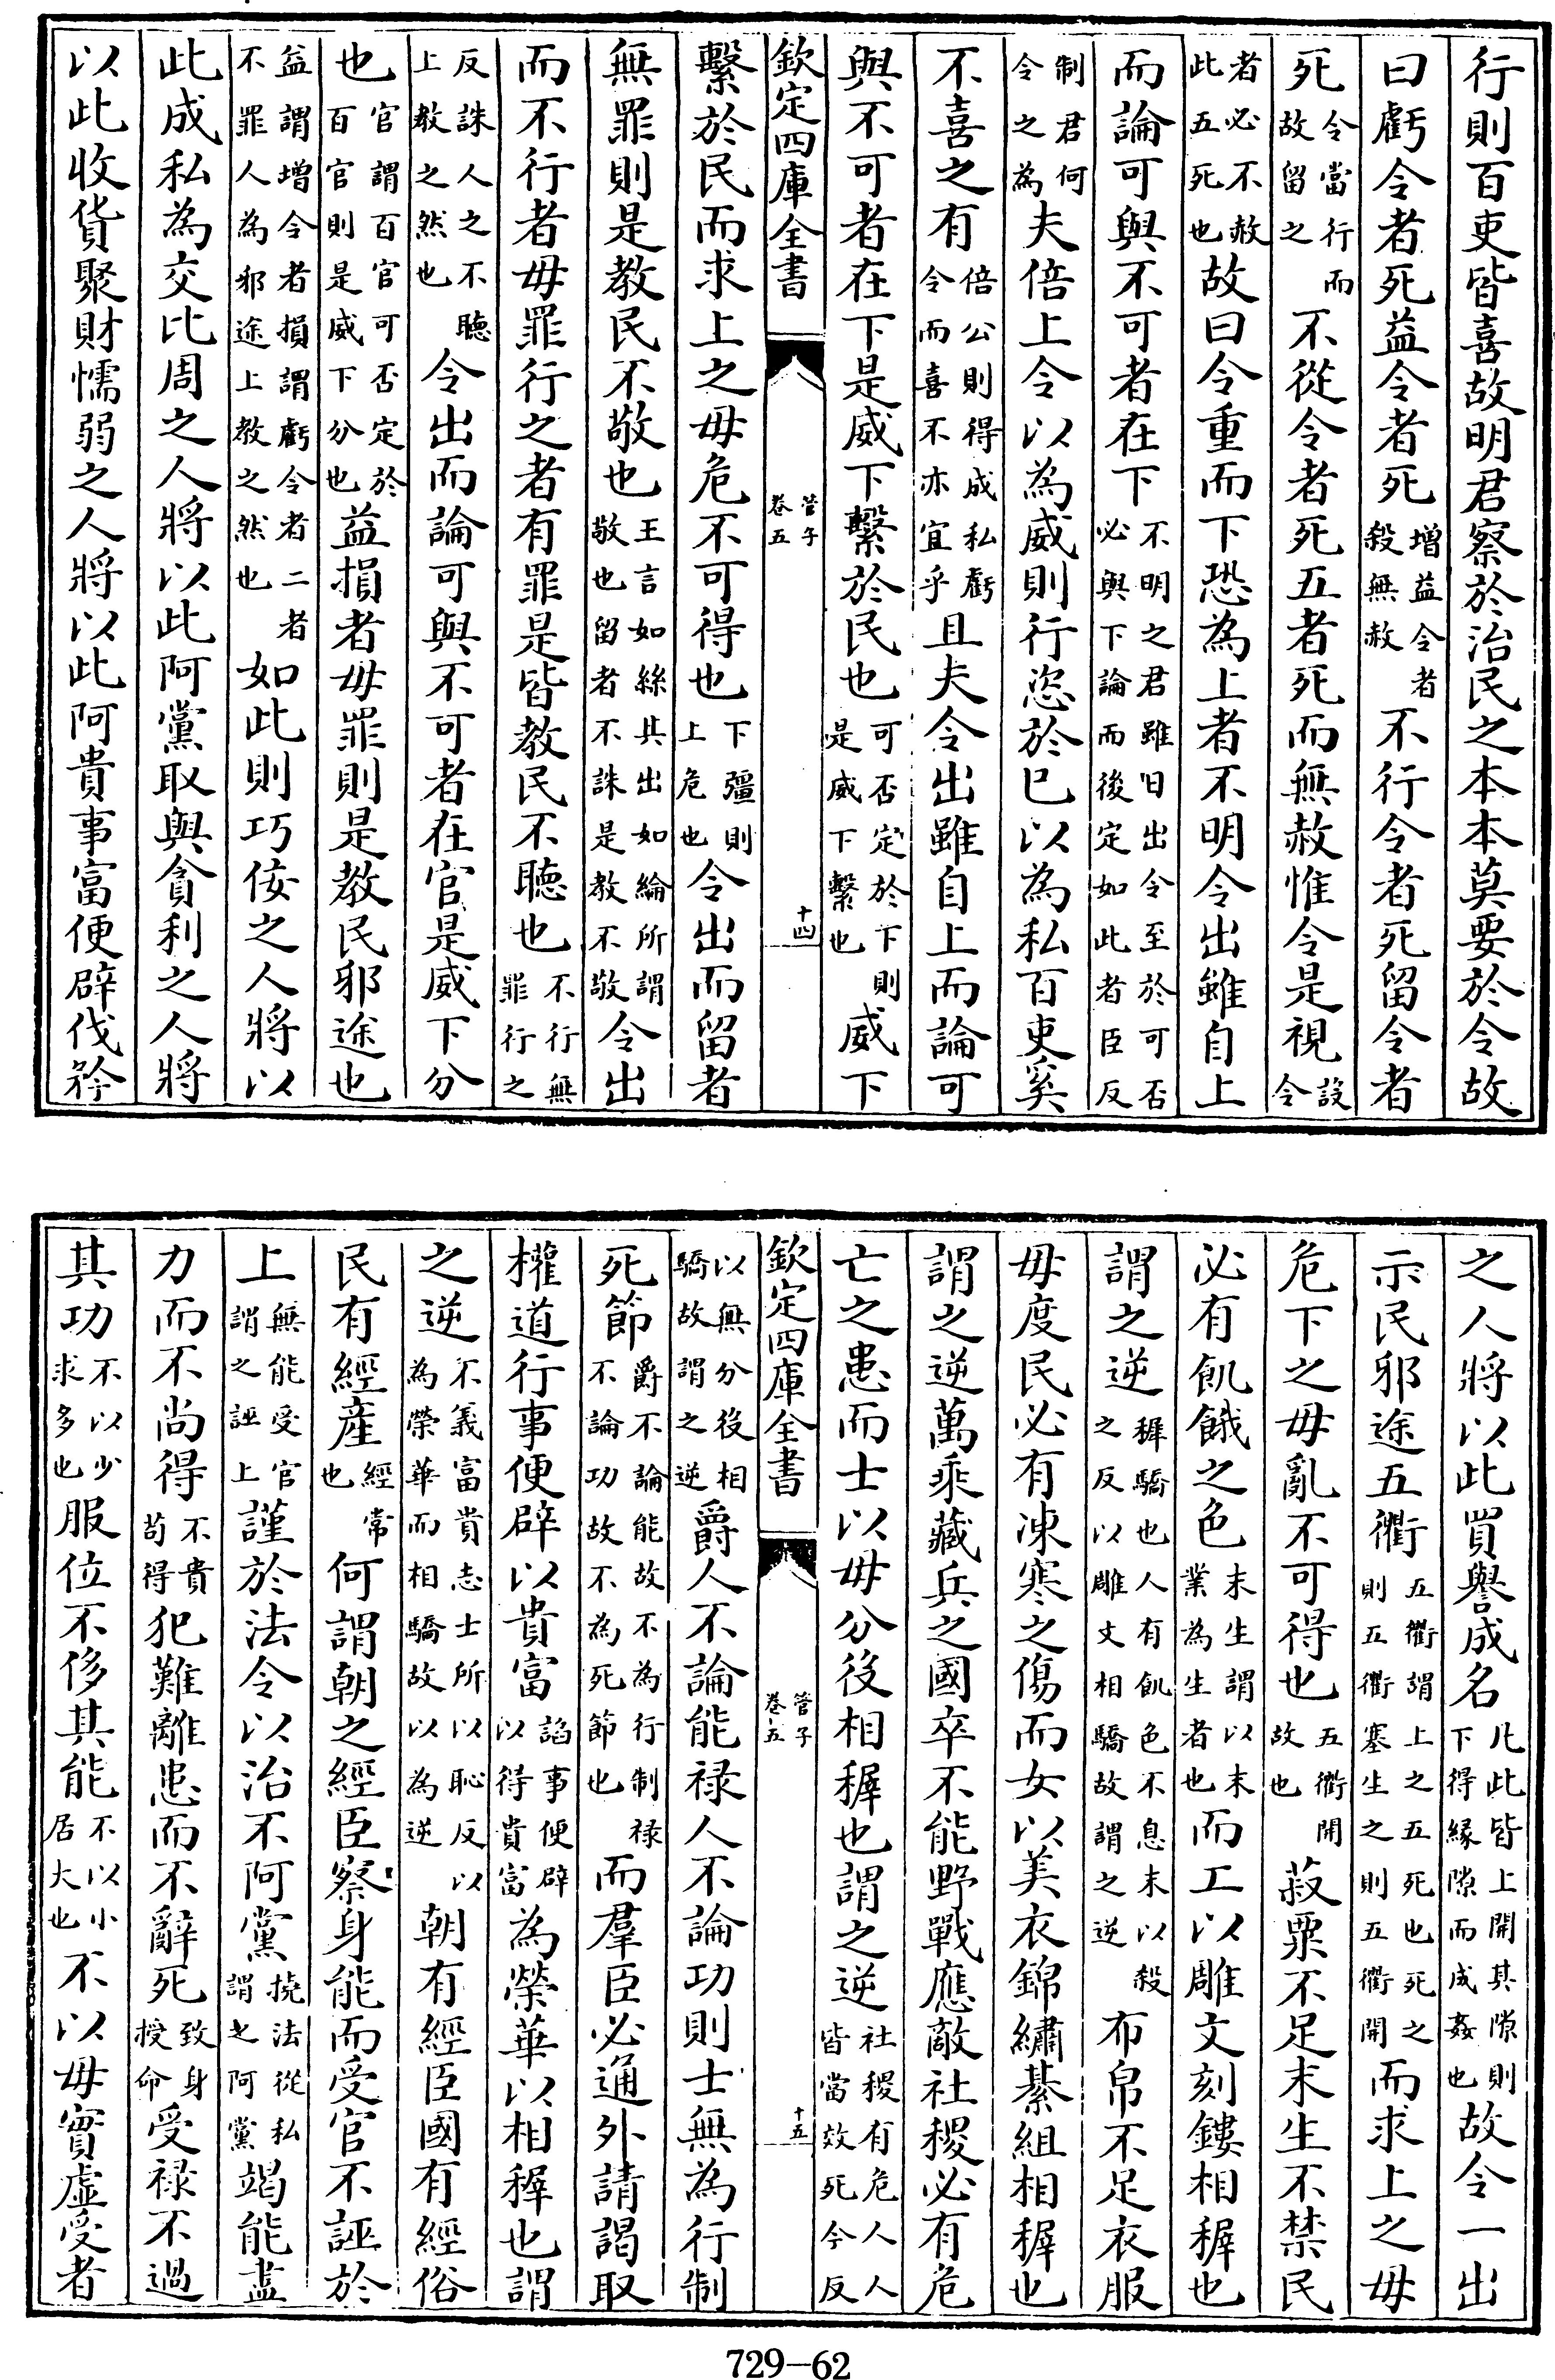 行則百吏皆喜故明君察於治民之本本莫要於令故
曰虧令者死益令者死增益令者殺無赦不行令者死留令者
死令當行而故留之不從令者死五者死而無赦惟令是視設令
者必不赦此五死也故曰令重而下恐為上者不明令出雖自上
而論可與不可者在下不明之君雖日出令至於可否必與下論而後定如此者臣反
制君何令之為夫倍上令以為威則行恣於已以為私百吏奚
不喜之有倍公則得成私虧令而喜不亦宜乎且夫令出雖自上而論可
與不可者在下是威下繫於民也可否定於下則是威下繫也威下
欽定四庫全書
管子
卷五
十四
繫於民而求上之毋危不可得也下彊則上危也令出而留者
無罪則是教民不敬也王言如絲其出如綸所謂敬也留者不誅是教不敬令出
而不行者毋罪行之者有罪是皆教民不聽也不行無罪行之
反誅人之不聽上教之然也令出而論可與不可者在官是威下分
也官謂百官可否定於百官則是威下分也益損者毋罪則是教民邪途也
益謂增令者損謂虧令者二者不罪人為邪途上教之然也如此則巧佞之人將以
此成私為交比周之人將以此阿黨取與貪利之人將
以此收貨聚財懦弱之人將以此阿貴事富便辟伐矜
之人將以此買譽成名凡此皆上開其隙則下得緣隙而成姦也故令一出
示民邪途五衢五衢謂上之五死也死之則五衢塞生之則五衢開而求上之毋
危下之毋亂不可得也五衢開故也菽粟不足末生不禁民
必有飢餓之色末生謂以末業為生者也而工以雕文刻鏤相穉也
謂之逆穉驕也人有飢色不息末以殺之反以雕文相驕故謂之逆布帛不足衣服
毋度民必有凍寒之傷而女以美衣錦繡綦組相穉也
謂之逆萬乘藏兵之國卒不能野戰應敵社稷必有危
亡之患而士以毋分役相穉也謂之逆社稷有危人人皆當效死今反
欽定四庫全書
管子
卷五
十五
以無分役相驕故謂之逆爵人不論能祿人不論功則士無為行制
死節爵不論能故不為行制祿不論功故不為死節也而羣臣必通外請謁取
權道行事便辟以貴富諂事便辟以得貴富為榮華以相穉也謂
之逆不義富貴志士所以恥反以為榮華而相驕故以為逆朝有經臣國有經俗
民有經產經常也何謂朝之經臣察身能而受官不誣於
上無能受官謂之誣上謹於法令以治不阿黨撓法從私謂之阿黨竭能盡
力而不尚得不貴苟得犯難離患而不辭死致身授命受祿不過
其功不以少求多也服位不侈其能不以小居大也不以毋實虛受者
729-62